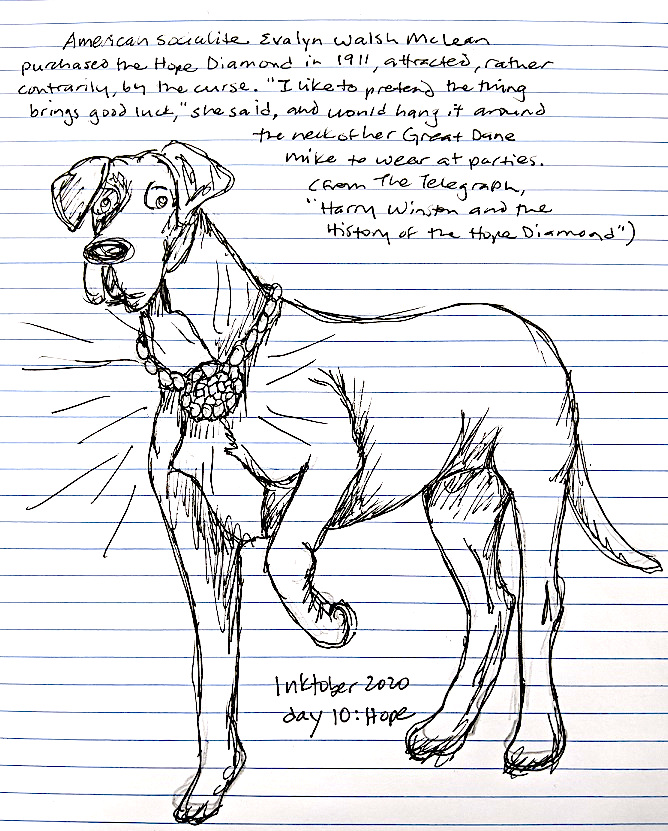 American socialite Evalyn Walsh McLean
purchased the Hope Diamond in 1911, attracted, rather
contrarily, by the curse. "I like to pretend the thing
brings good luck," she said, and would hang it around
the neck of her Great Dane
Mike to wear at parties.
(From The Telegraph,
"Harry Winston and the
History of the Hope Diamond")
Inktober 2020
day 10: Hope